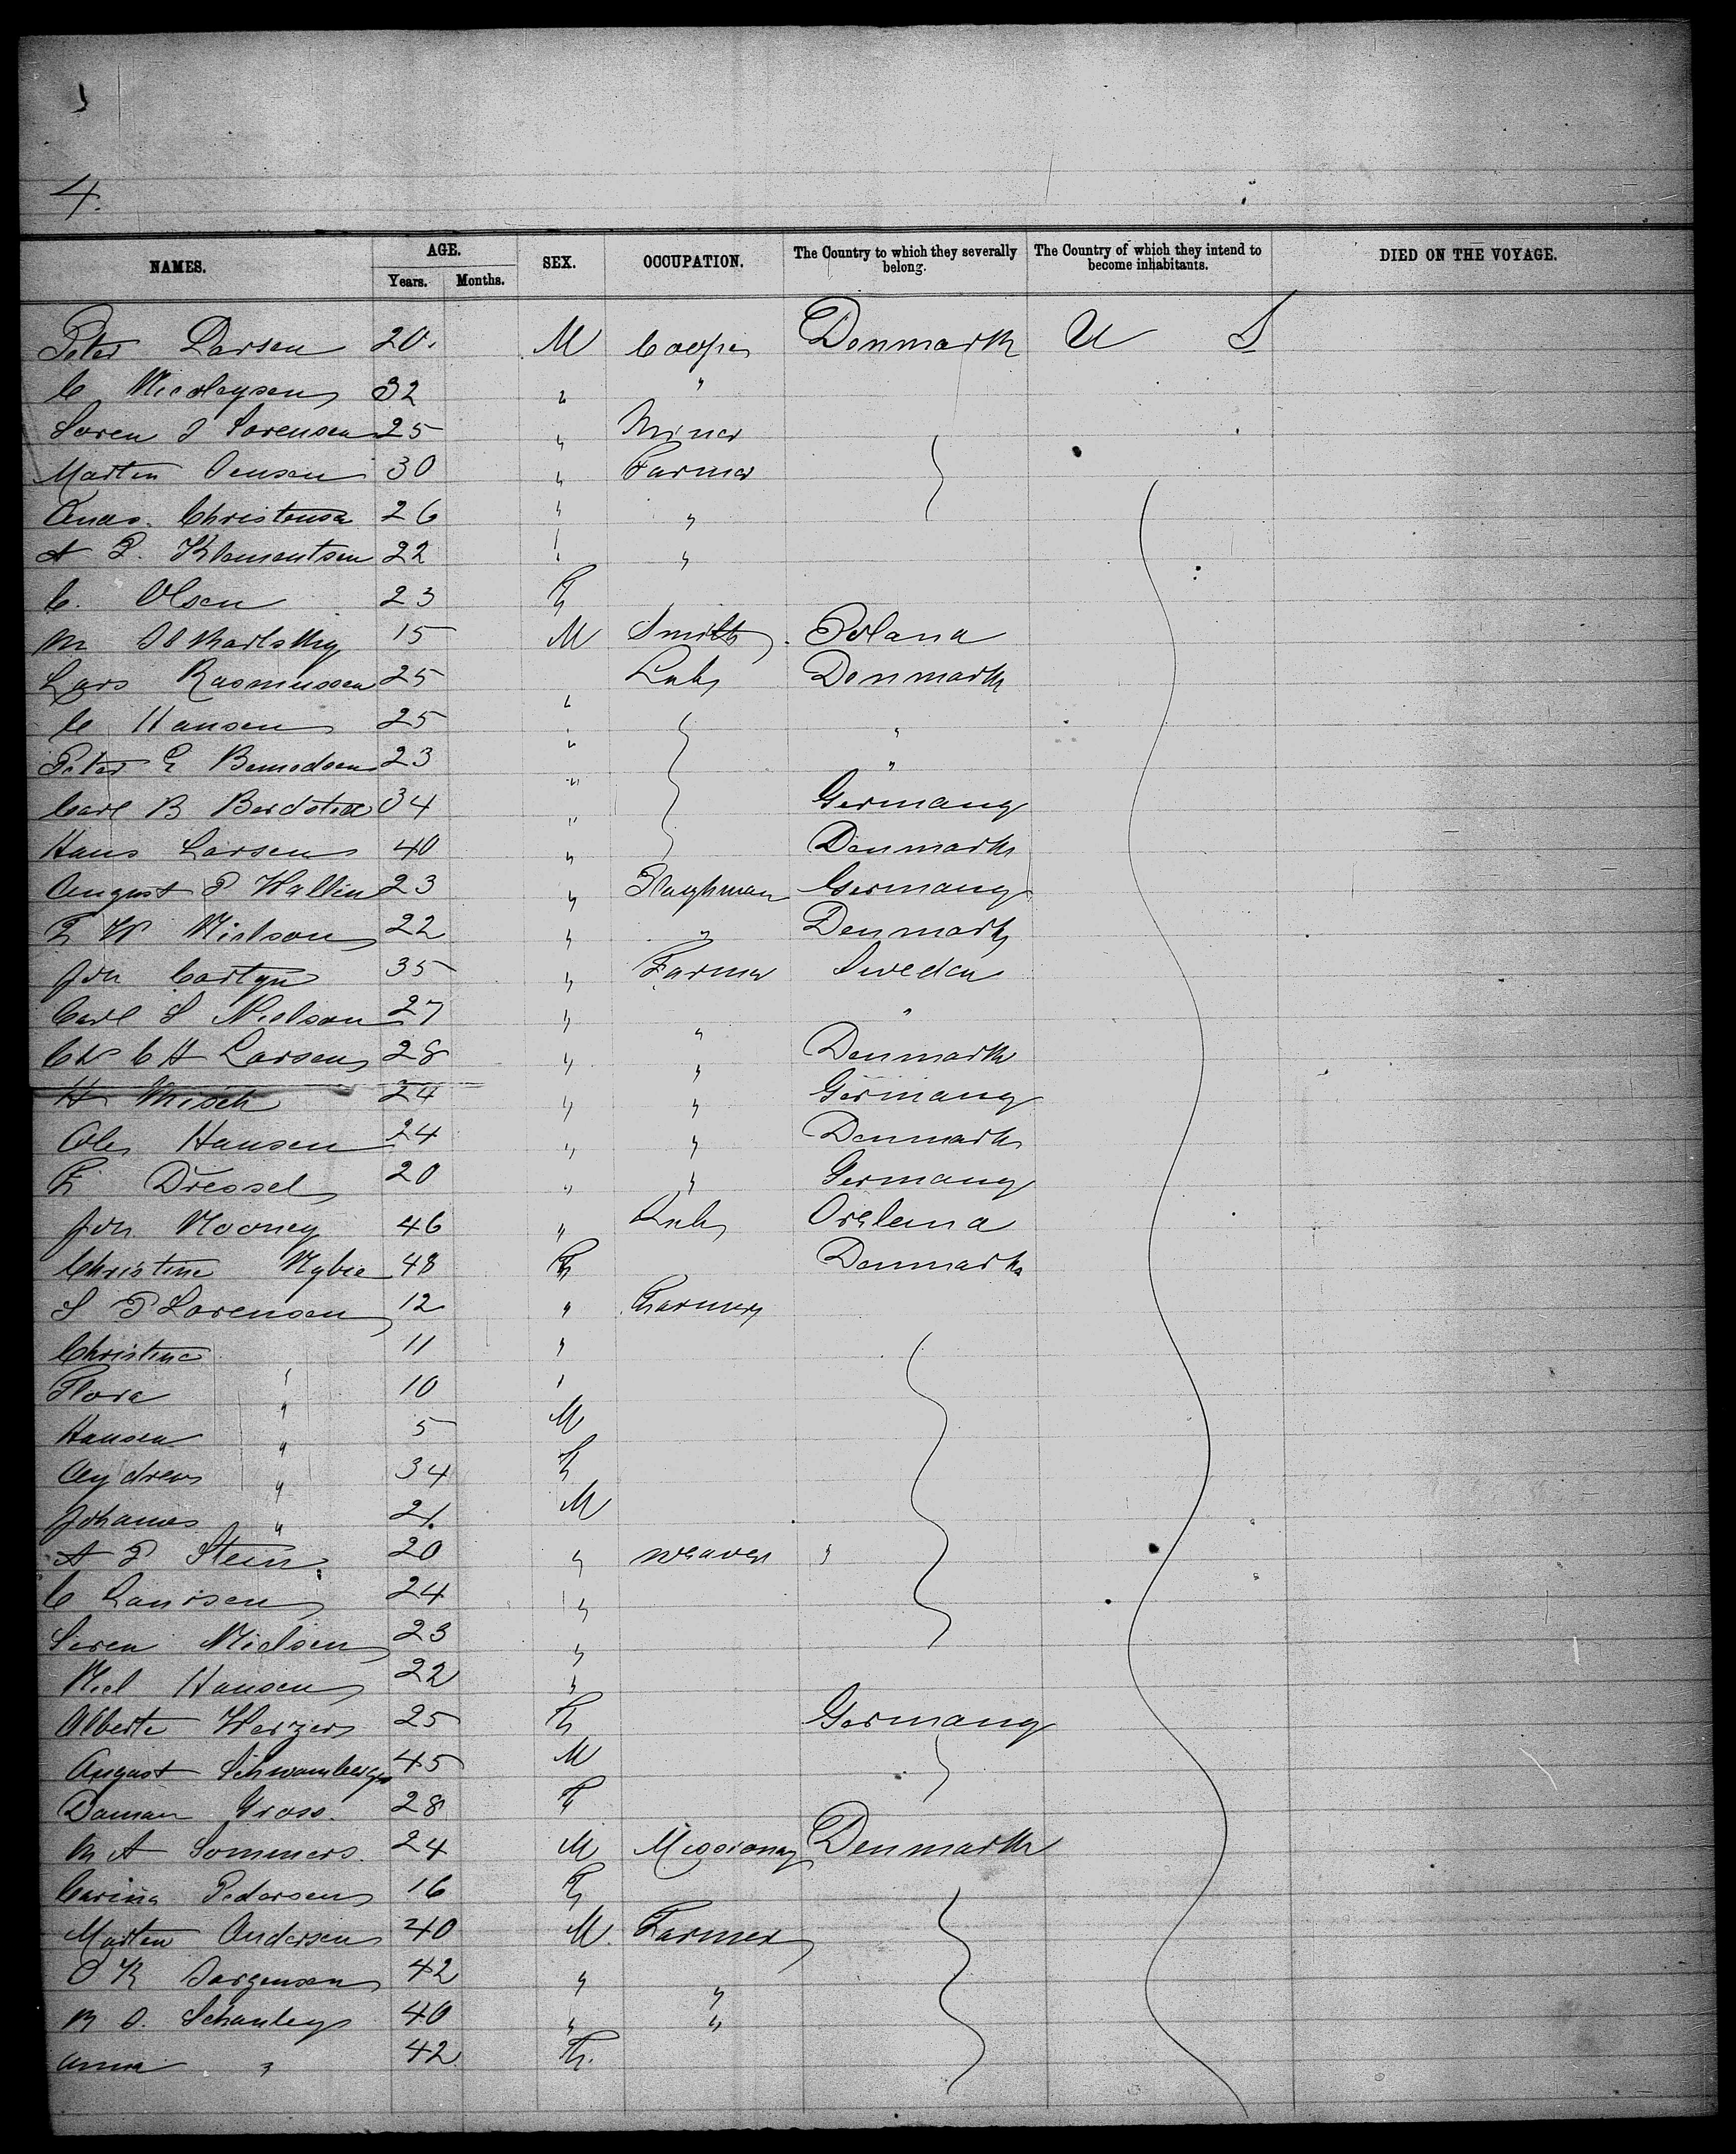 4.
NAMES. AGE. Years. Months. SEX. OCCUPATION. The Country to which they severally belong. The Country of which they intend to become inhabitants. DIED ON THE VOYAGE.
Peter Larsen 20. M Cooper Denmark U S
C Nicolaysen 32 " "
Soren J Sorensen 25 " Miner
Martin Jensen 30 " Farmer
Andr. Christensen 26 " "
A P. Klementsen 22 " "
C. Olsen 23 F
M 15 M Smith Poland
Lars Rasmussen 25 Lab Denmark
C Hansen 25 " "
Peter E 23 " "
Carl B 34 " Germany
Hans Larsen 40 " Denmark
August P Wallin 23 " Germany
F W Nielson 22 " " Denmark
Jon 35 " Farmer Sweden
Carl S Nielson 27 " " "
C H Larsen 28 " " Denmark
H 24 " " Germany
Ole Hansen 24 " " Denmark
F Dressel 20 " " Germany
Jon Mooney 46 " Lab Ireland
Christine Nybie 48 F Denmark
S P Sorensen 12 "
Christine " 11 "
Flora " 10 "
Hansen " 5 M
Andrew " 34 F
Johannes " 21. M
A P Stein 20 " weaver "
C Laursen 24 "
Soren Nielsen 23 "
Niel Hansen 22 "
Alberte 25 F Germany
August Schwamberger 45 M
Gross. 28 F
M A Sommers. 24 M Missionary Denmark
Carina Pedersen 16 F
Morten Andersen 40 M. Farmer
Jorgensen 42 " "
40 " "
Anna " 42 F.